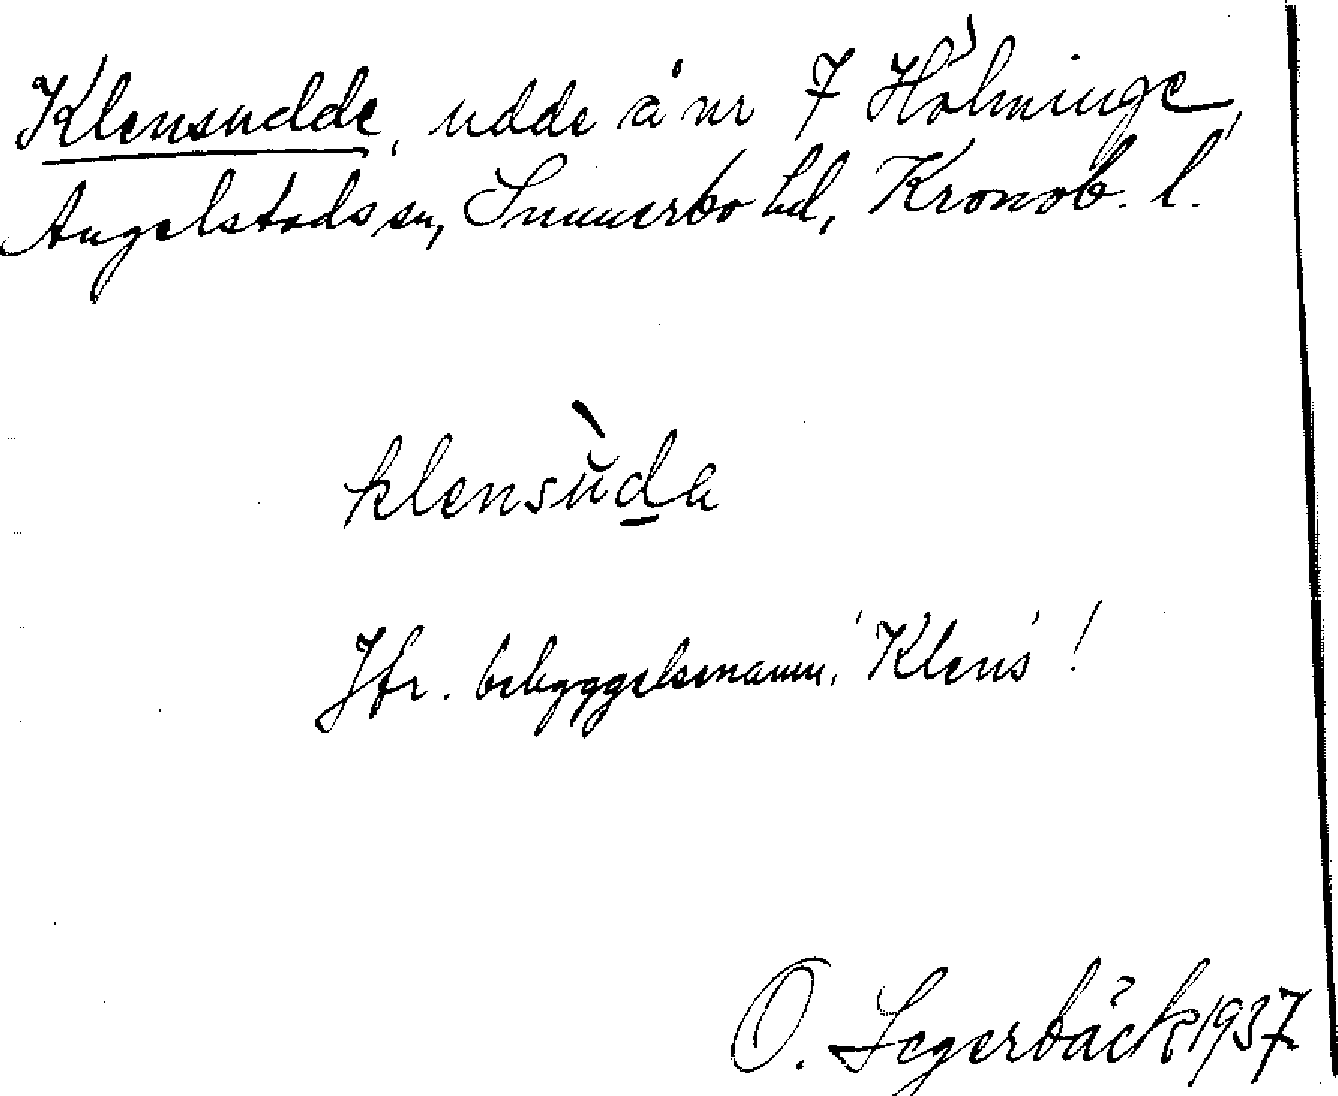 Klensudde, udde å nr 7 Hölminge,
Angelstads sn, Sunnerbo hd, Kronob. l.
klensùda
Jfr. bebyggelsenamn. 'Klens'!
O. Segerbäck 1937